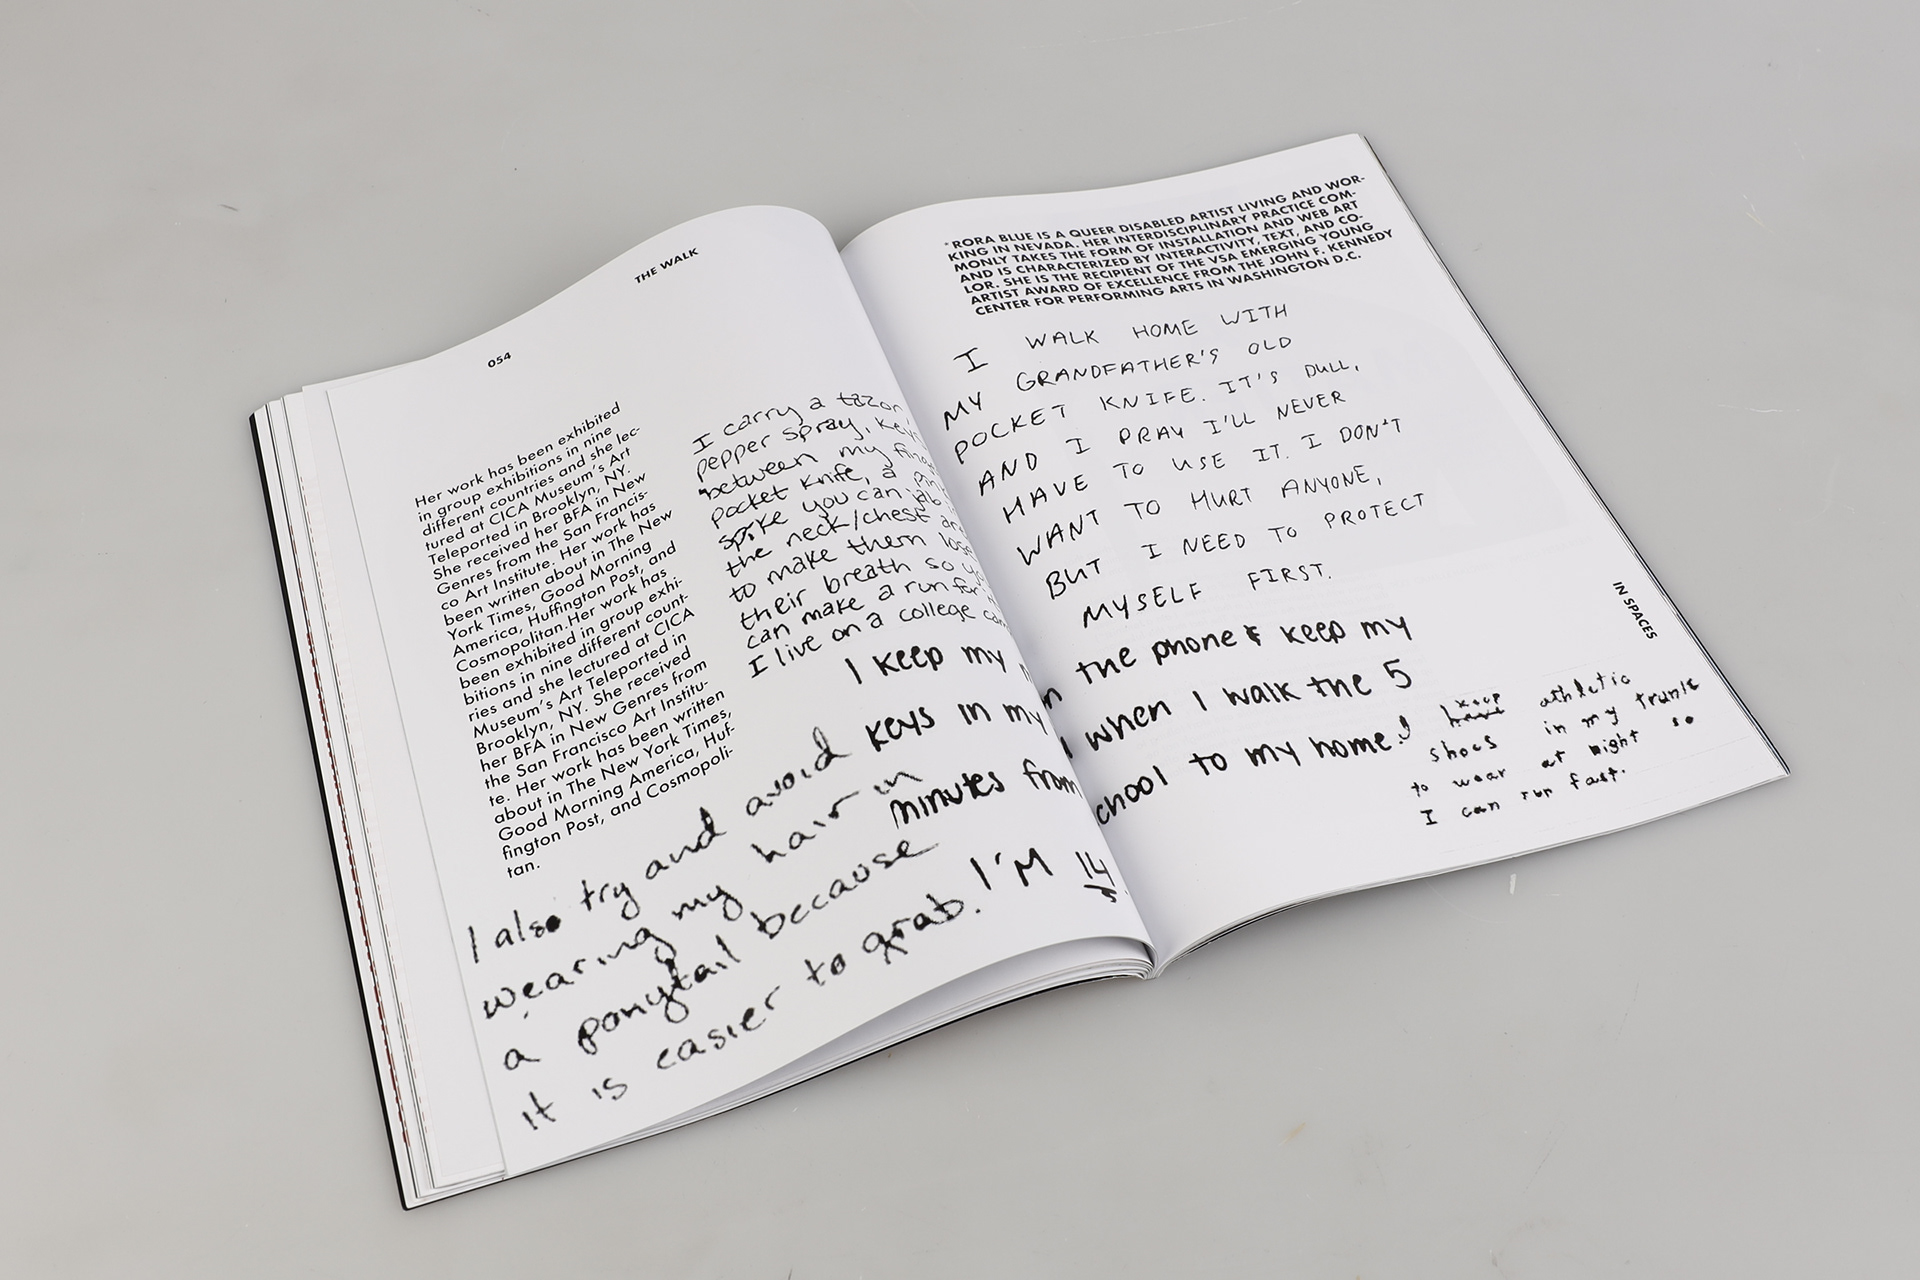 THE WALK
054
Her work has been exhibited
in group exhibitions in nine
different countries and she lec-
tured at CICA Museum's Art
Teleported in Brooklyn, NY.
She received her BFA in New
Genres from the San Francis-
co Art Institute. Her work has
been written about in The New
York Times, Good Morning
America, Huffington Post, and
Cosmopolitan.Her work has
been exhibited in group exhi-
bitions in nine different count-
ries and she lectured at CICA
Museum's Art Teleported in
Brooklyn, NY. She received
her BFA in New Genres from
the San Francisco Art Institu-
te. Her work has been written
about in The New York Times,
Good Morning America, Huf-
fington Post, and Cosmopoli-
tan.
I carry a tazor
pepper spray, keys
between my
pocket knife, a
spike you can jab
the neck/chest
to make them lose
their breath so
can make a run for
I live on a college
I keep my
keys in my
minutes from
I also try and avoid
wearing my hair in
a ponytail because
it is easier to grab. I'M 14
*RORA BLUE IS A QUEER DISABLED ARTIST LIVING AND WOR-
KING IN NEVADA. HER INTERDISCIPLINARY PRACTICE COM-
MONLY TAKES THE FORM OF INSTALLATION AND WEB ART
AND IS CHARACTERIZED BY INTERACTIVITY, TEXT, AND CO-
LOR. SHE IS THE RECIPIENT OF THE VSA EMERGING YOUNG
ARTIST AWARD OF EXCELLENCE FROM THE JOHN F. KENNEDY
CENTER FOR PERFORMING ARTS IN WASHINGTON D.C.
I WALK HOME WITH
MY GRANDFATHER'S OLD
POCKET KNIFE. IT'S DULL,
AND I PRAY I'LL NEVER
HAVE TO USE IT. I DON'T
WANT TO HURT ANYONE,
BUT I NEED TO PROTECT
MYSELF FIRST.
the phone & keep my
when I walk the 5
chool to my home.
I keep athletic
shoes in my trunk
to wear at night so
I can run fast.
IN SPACES